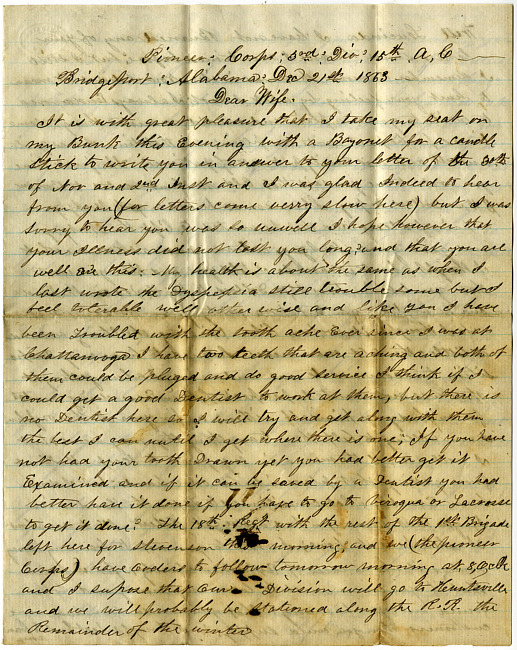 Pioneer: Corps; 3rd: Div: 15th A, C
Bridgeport; Alabama: Dec 21st 1863
Dear Wife.
It is with great pleasure that I take my seat on
my Bunk this Evening with a Bayonet for a candle
stick to write you in answer to your letter of the 30th
of Nov and 2nd Inst and I was glad Indeed to hear
from you (for letters come verry slow here) but I was
sorry to hear you was so unwell I hope however that
your Illness did not last you long: and that you are
well ere this: My health is about the same as when I
last wrote the Dyspepsia still trouble some but I
feel tolerable well other wise and like you I have
been troubled with the tooth ache Ever since I was at
Chattanooga I have two teeth that are aching and both of
them could be pluged and do good service I think if I
could get a good Dentist to work at them, but there is
no Dentist here so I will try and get along with them
the best I can until I get where there is one; If you have
not had your tooth Drawn yet you had better get it
Examined and if it can be saved by a Dentist you had
better have it done if you have to go to Viroqua or Lacrosse
to get it done? The 18th Regt with the rest of the 1st Brigade
left here for Stevenson this morning, and we (the pioneer
Corps) have orders to follow tomorrow morning at 8,Oclk
and I supose that Our Division will go to Huntsville
and we will probably be stationed along the R.R. the
Remainder of the winter